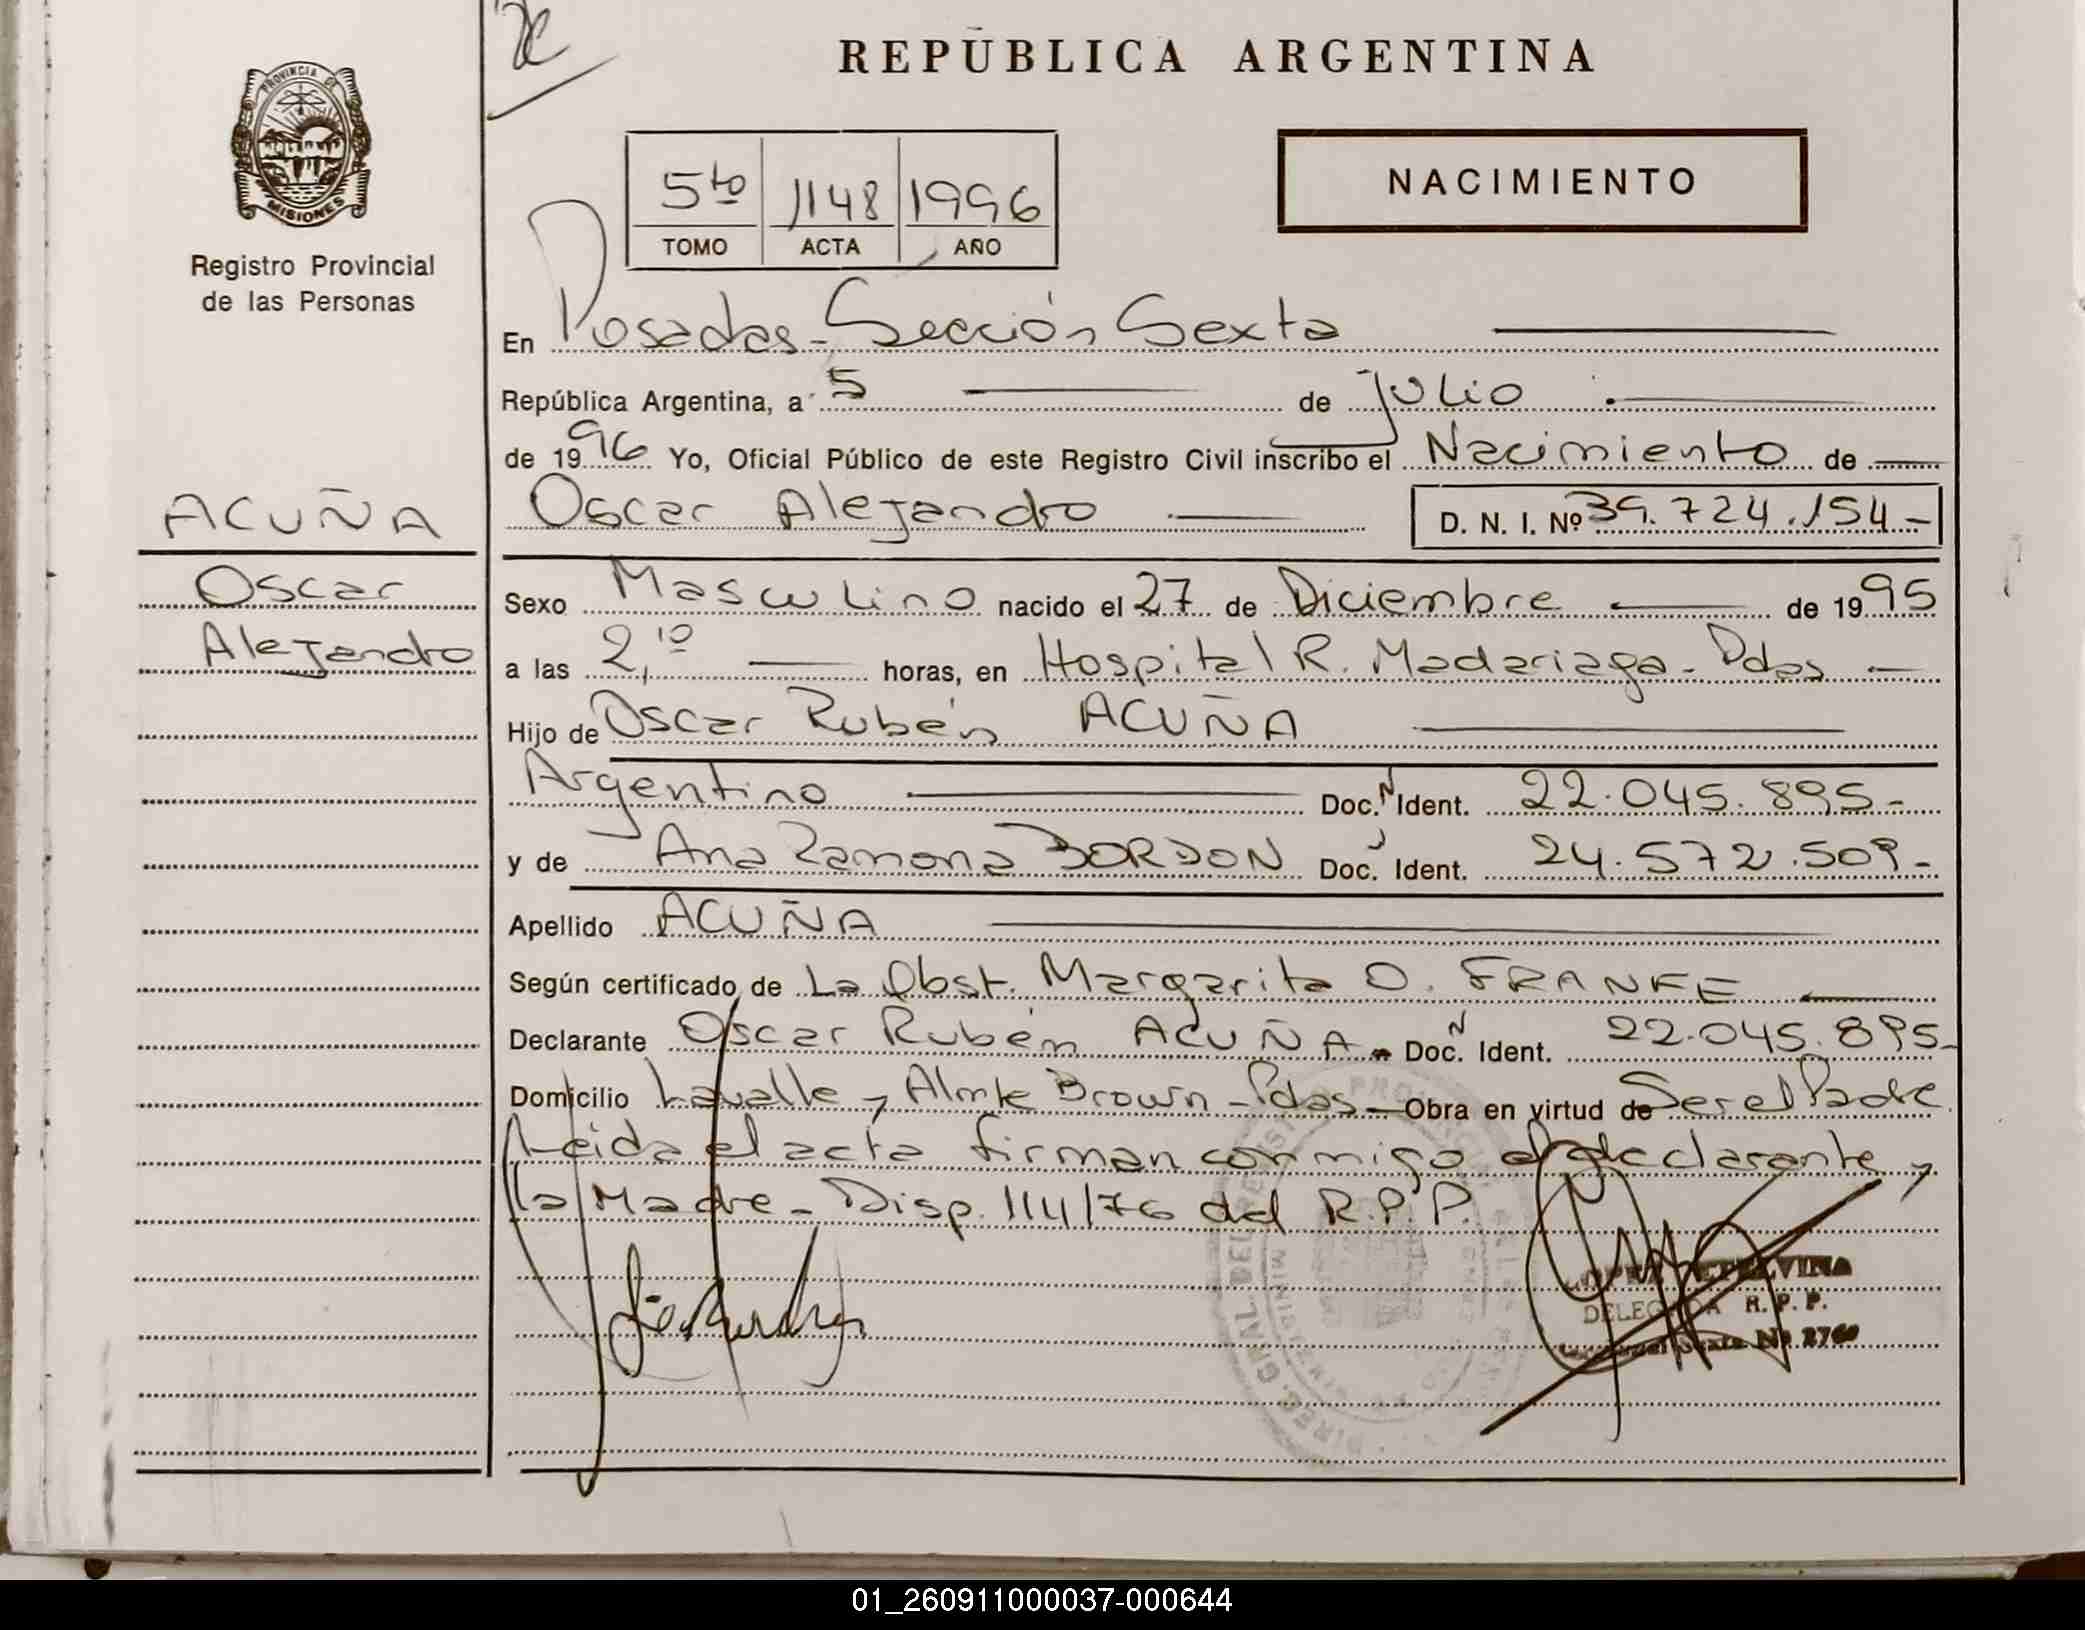 REPÚBLICA ARGENTINA
PROVINCIA DE
MISIONES
Registro Provincial
de las Personas
5to 1148 1996
TOMO ACTA AÑO
NACIMIENTO
En Posadas - Sección Sexta
República Argentina, a 5 de Julio
de 1996 Yo, Oficial Público de este Registro Civil inscribo el Nacimiento de
Oscar Alejandro D. N. I. Nº 39.724.154-
ACUÑA
Oscar
Alejandro
Sexo Masculino nacido el 27 de Diciembre de 1995
a las 2,10 horas, en Hospital R. Madariaga - Pdas
Hijo de Oscar Rubén ACUÑA
Argentino Doc. N Ident. 22.045.895-
y de Ana Ramona BORDON Doc. Ident. 24.572.509-
Apellido ACUÑA
Según certificado de La Obst. Margarita O. FRANKE
Declarante Oscar Rubén ACUÑA - Doc. N Ident. 22.045.895-
Domicilio Lavalle y Almte Brown - Pdas - Obra en virtud de Ser el Padre
Leida el acta firman conmigo el declarante y
la Madre - Disp. 114/76 del R.P.P.
LOPEZ ETELVINA
DELEGADA R. P. P.
Nº 2760
DIREC. GRAL. DEL REGISTRO PROVINCIAL
01_260911000037-000644